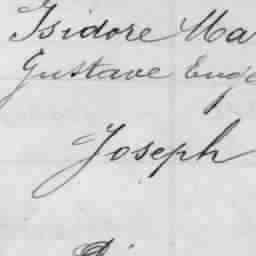 Isidore Ma
Gustave Euge
Joseph